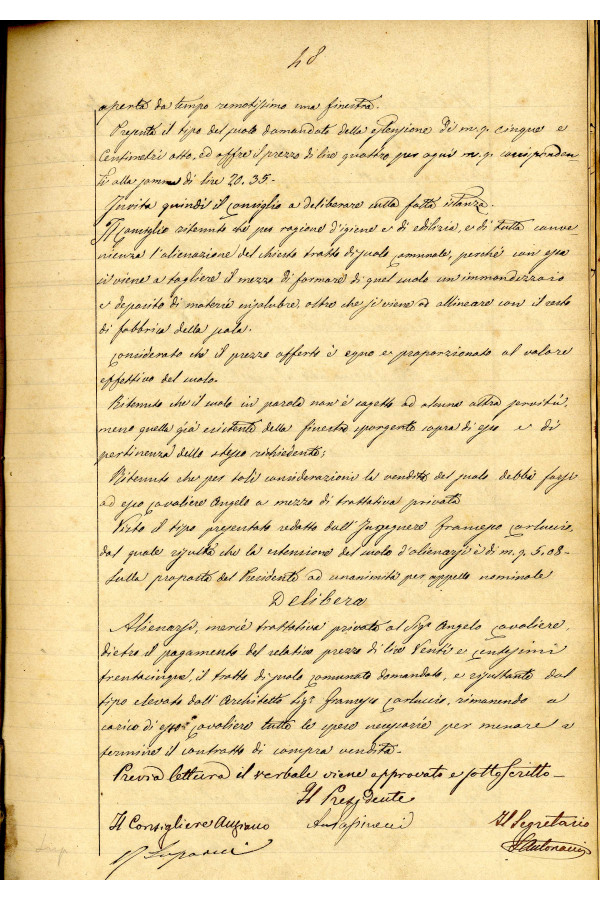 48
aperta da tempo remotissimo una finestra.
Presenta il tipo del suolo domandato della estensione di m.q. cinque e
centimetri otto, ed offre il prezzo di lire quattro per ogni m.q. corrisponden-
ti alla somma di lire 20.35-
Invita quindi il Consiglio a deliberare sulla fatta istanza.
Il Consiglio ritenuto che per ragione d'igiene e di edilizia, e di tutta conve-
nienza l'alienazione del chiesto tratto di suolo comunale, perché con essa
si viene a togliere il mezzo di formare di quel suolo un immondezzaio
e deposito di materie insalubre, oltre che si viene ad allineare con il resto
di fabbrica della
Considerato che il prezzo offerto è equo e proporzionato al valore
effettivo del suolo.
Ritenuto che il suolo in parola non è soggetto ad alcuna altra servitù,
meno quella già esistente della finestra sporgente sopra di esso e di
pertinenza dello stesso richiedente;
Ritenuto che per tali considerazioni la vendita del suolo debba farsi
ad esso Cavaliere Angelo a mezzo di trattativa privata
Visto il tipo presentato redatto dall'Ingegnere Francesco Carluccio,
dal quale risulta che la estensione del suolo d'alienarsi è di m.q. 5,08-
Sulla proposta del Presidente ad unanimità per appello nominale
Delibera
Alienarsi, mercè trattativa privata al Sigr Angelo Cavaliere,
dietro il pagamento del relativo prezzo di lire Venti e centesimi
trentacinque, il tratto di suolo comunale domandato, e risultante dal
tipo elevato dall'Architetto Sigr Francesco Carluccio, rimanendo a
carico di esso Cavaliere tutte le spese necessarie per menare a
termine il contratto di compra vendita-
Previa lettura il verbale viene approvato e sottoscritto-
Il Presidente
Il Consigliere Anziano
Il Segretario